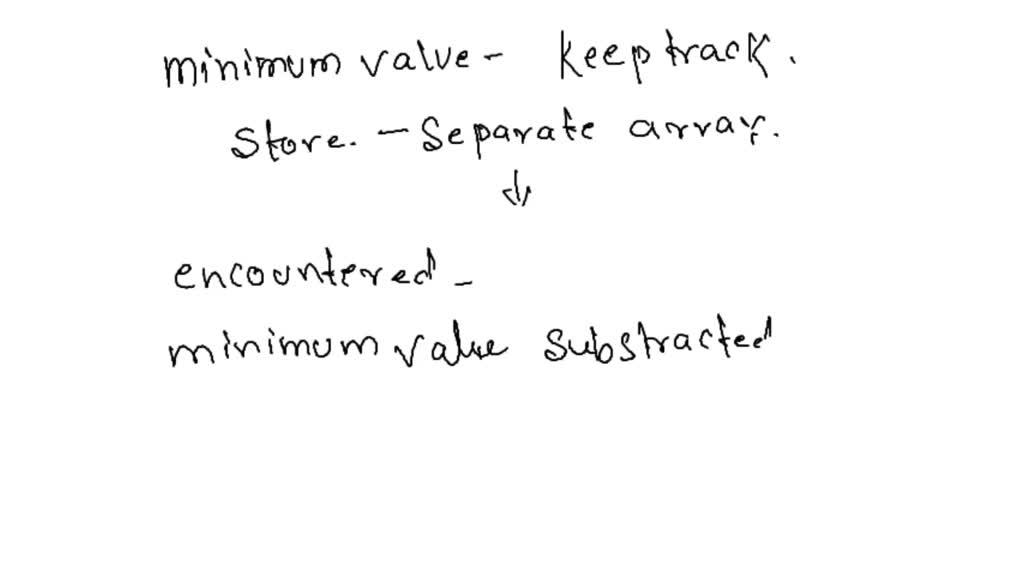 minimum value - Keep track.
Store. - Separate array.
↓
encountered -
minimum value substracted